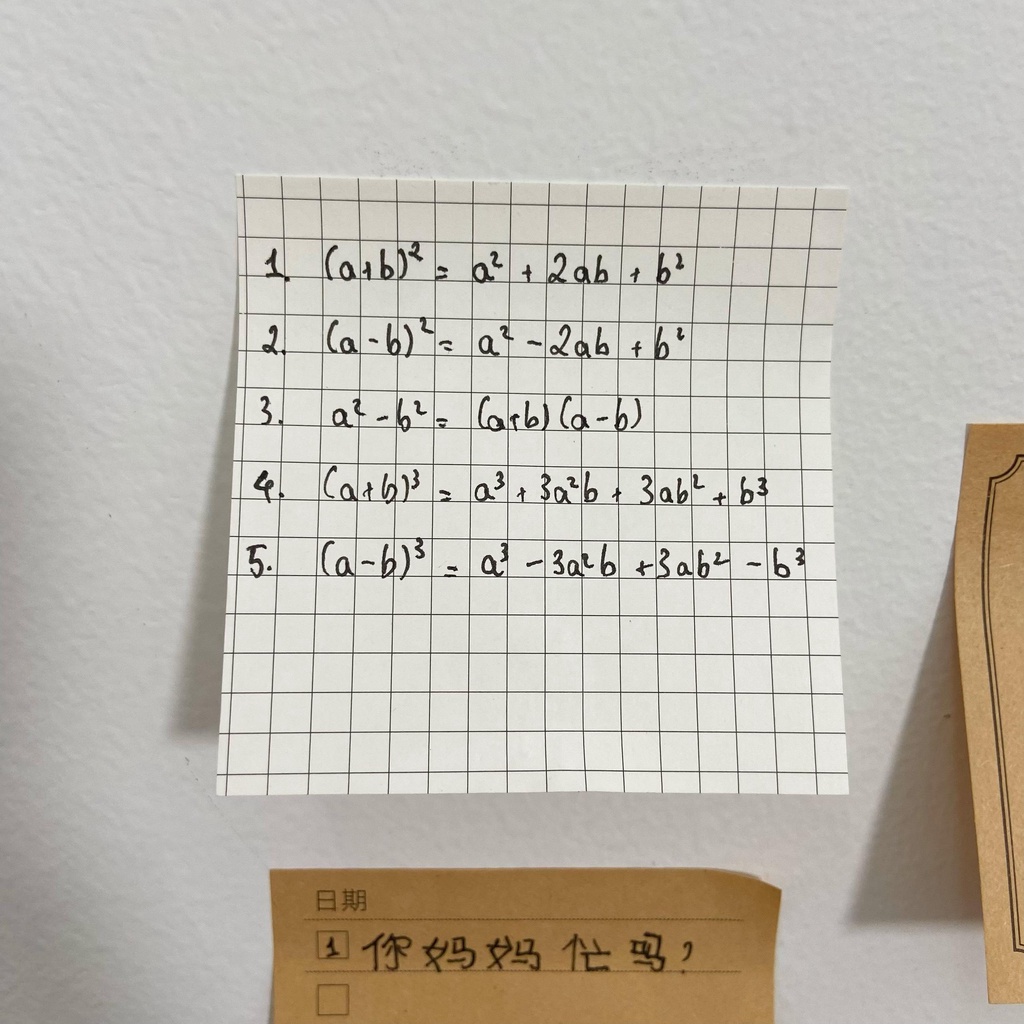 1. (a+b)² = a² + 2ab + b²
2. (a-b)² = a² - 2ab + b²
3. a² - b² = (a+b)(a-b)
4. (a+b)³ = a³ + 3a²b + 3ab² + b³
5. (a-b)³ = a³ - 3a²b + 3ab² - b³
日期
1 你妈妈忙吗?